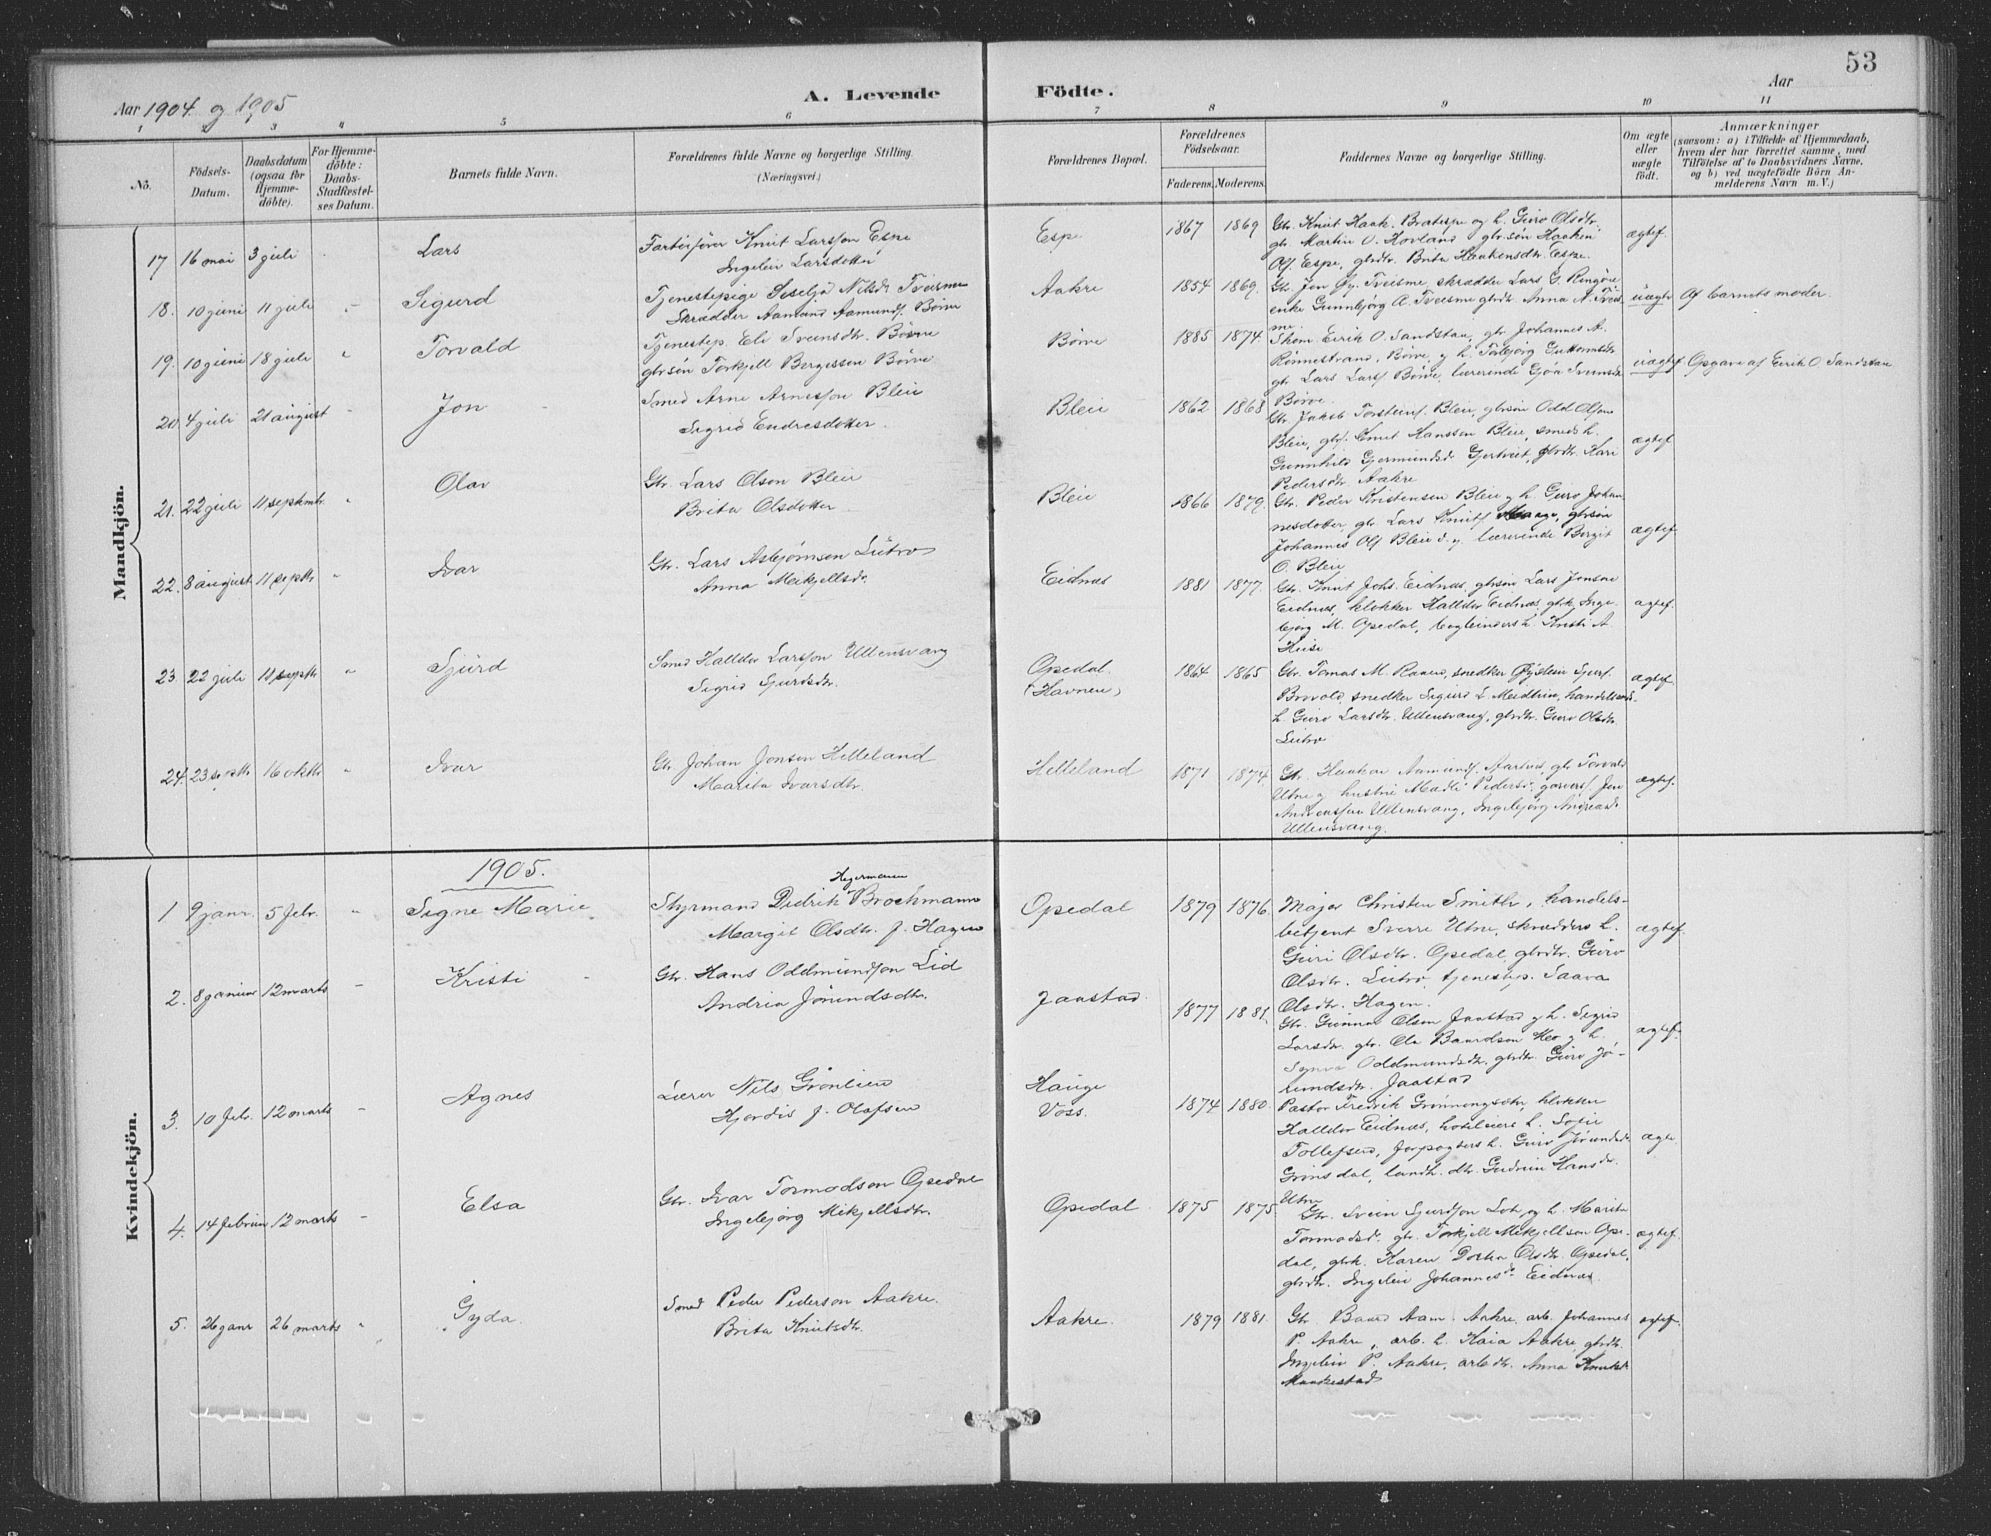 53
Aar 1904 og 1905
A. Levende
Födte.
Aar
1 2 3 4 5 6 7 8 9 10 11
No.
Födsels-Datum.
Daabsdatum (ogsaa for Hjemme-döbte).
For Hjemme-döbte: Daabs-Stadfæstel-ses Datum.
Barnets fulde Navn.
Forældrenes fulde Navne og borgerlige Stilling. (Næringsvei.)
Forældrenes Bopæl.
Forældrenes Födselsaar.
Faderens. Moderens.
Faddernes Navne og borgerlige Stilling.
Om ægte eller uægte födt.
Anmærkninger
(saasom: a) i Tilfælde af Hjemmedaab,
hvem der har forrettet samme, med
Tilföielse af to Daabsvidners Navne,
og b) ved uægtefödte Börn An-
melderens Navn m. V.)
Mandkjön.
17 16 mai 3 juli Lars
Knut Larsson Espe
Ingeleiv Larsdotter
Espe 1867 1869
Gbr. Knut Haak. Bratespe og h. Guro Olsdtr.
gbr. Martin O. Hovland gbrsön Haakon
Ols. Espe, gbrdtr. Brita Haakensdtr. Espe
ægtef.
18. 10 juni 11 juli " Sigurd
Tjenestepige Seselja Nilsdr. Tveisme
Skrædder Aamund Aamunds. Börve
Aakre 1854 1869.
Gbr. Jon Öy. Tveisme, skrædder Lars G. Ringöie
enke Gunnbjörg A. Tveisme gbrdtr. Anna N. Tveis
me.
uægte Af barnets moder.
19. 10 juni 18 juli " Torvald
Tjenestep. Eli Sveinsdtr. Börve
gbrsön Torkjell Bergesson Börve
Börve 1885 1874.
Skom. Eirik O. Sandstaa, gbr. Johannes A.
Rönnestrand, Börve, og h. Torbjörg Guttormsdr
gbr Lars Lars. Börve, lærerinde Gjöa Sveinsdr
Börve.
uægtef. Opgave af Eirik O. Sandstaa
20. 4 juli 21 august " Jon
Smed Arne Arnesson Bleie
Sigrid Endresdotter.
Bleie 1862 1868
Gbr. Jakob Torsteins. Bleie, gbrsön Odd Olsson
Bleie, gbr. Knut Hanssen Bleie, smeds h.
Gunnhild Gjermundsd. Gjertveit, gbrdtr. Kari
Pedersdtr. Aakre
ægtef
21. 22 juli 11 septmbr. " Olav
Gbr. Lars Olson Bleie
Brita Olsdotter.
Bleie 1866 1879.
Gbr. Peder Kristensen Bleie og h. Guro Johan
nesdotter gbr Lars Knuts. gbrsön
Johannes Ols. Bleie d.y. lærerinde Bergit
O. Bleie
ægtef
22. 8 august 11 septbr. " Ivar
Gbr. Lars Asbjörnson Lutro
Anna Mikjellsdr.
Eidnes 1881 1877.
Gbr. Knut Johs. Eidnes, gbrsön Lars Jonson
Eidnes, klokker Halldor Eidnes, gbrk. Inge-
björg M. Opedal, h. Kristi A.
Huse
ægtef.
23. 22 juli 11 septbr. " Sjurd
Smed Halldor Larsson Ullensvang
Sigrid Sjurdsdtr.
Opedal.
(Havnen)
1864 1865
Gbr. Tomas M. Raaen, snedker Öystein Sjurs.
snedker Sigurd L. handelsmds
h. Guro Larsdtr. Ullensvang, gbrdtr. Guro Olsdtr.
Lutro
ægtef.
24. 23 septbr. 16 oktbr. " Ivar
Gbr. Johan Jonson Helleland
Marita Ivarsdtr.
Helleland 1871 1874.
Gbr. Haakon Aamunds. Aarhus, gbr Torvald
Utne og hustru Madli Pedersd.
Ullensvang, Ingebjörg Andreasd.
Ullensvang.
ægtef.
Kvindekjön.
1905.
1 9 janr. 5 febr. " Signe Marie
Hegermann
Styrmand Didrik Brochmann
Margit Olsdtr. f. Hagen
Opedal 1879 1876.
Major Christen Smith, handels-
betjent Sverre Utne, skrædders h.
Guri Olsdtr. Opedal, gbrdtr. Guro
Olsdtr. Lutro, tjenestep. Saava
Olsdtr. Hagen.
ægtef.
2. 8 januar 12 marts " Kristi
Gbr. Hans Oddmundson Lid
Andria Jörundsdtr.
Jaastad. 1877 1881.
Gbr. Gunnar Olson Jaastad og h. Sigrid
Larsdtr. gbr. Ola Baardson Mo og h.
Synva Oddmundsdtr. gbrdtr. Guro Jö-
rundsdtr. Jaastad
ægtef.
3. 10 febr. 12 marts " Agnes
Lærer Nils Grönlien
Hjördis f. Olafsen
Hauge
Voss.
1874 1880.
Pastor Fredrik Grönningsæter, klokker
Halldor Eidnes, hoteleiers h. Sofie
Tollefsen, forpagters h. Guro Jörundsdr.
Grimsdal, landh. dtr. Gudrun Hansdr.
Utne
ægte.
4. 14 februar 12 marts " Elsa
Gbr. Ivar Tormodson Opedal
Ingebjörg Mikjellsdtr.
Opedal. 1875 1875
Gbr. Svein Sjurdson Lote og h. Marita
Tormodsd. gbr. Torkjell Mikjellson Ope-
dal, gbrk. Karen Dortea Olsdtr. Opedal,
gbrdtr. Ingeleiv Johannesdr. Eidnes.
ægtef.
5. 26 janr 26 marts " Gyda.
Smed Peder Pederson Aakre.
Brita Knutsdtr.
Aakre. 1879 1881.
Gbr. Baard Aam. Aakre, arb. Johannes
P. Aakre, arb. h. Kaia Aakre, gbrdtr.
Ingeleiv P. Aakre, arb.dtr. Anna Knutsd.
Maakestad
ægtef.